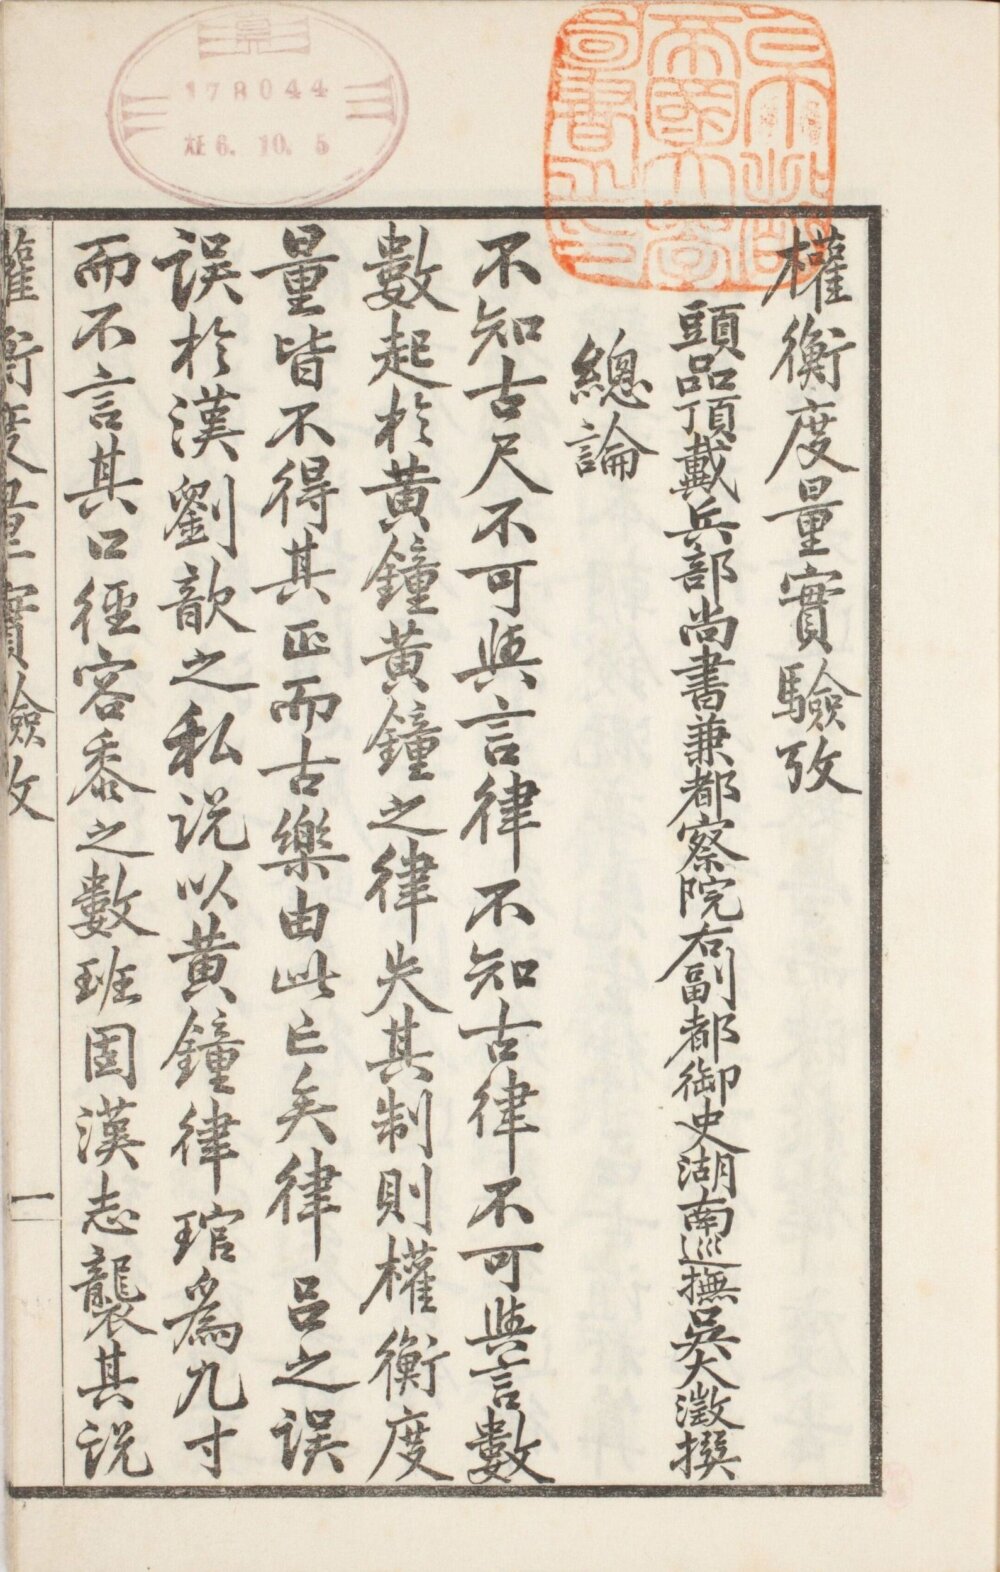 權衡度量實驗攷
頭品頂戴兵部尚書兼都察院右副都御史湖南巡撫吳大澂撰
總論
不知古尺不可與言律不知古律不可與言數
數起於黃鐘黃鐘之律失其制則權衡度
量皆不得其正而古樂由此亡矣律呂之誤
誤於漢劉歆之私說以黃鐘律琯爲九寸
而不言其口徑容黍之數班固漢志襲其說
權衡度量實驗攷
一
178044
昭6.10.5
京都帝國大學圖書之印